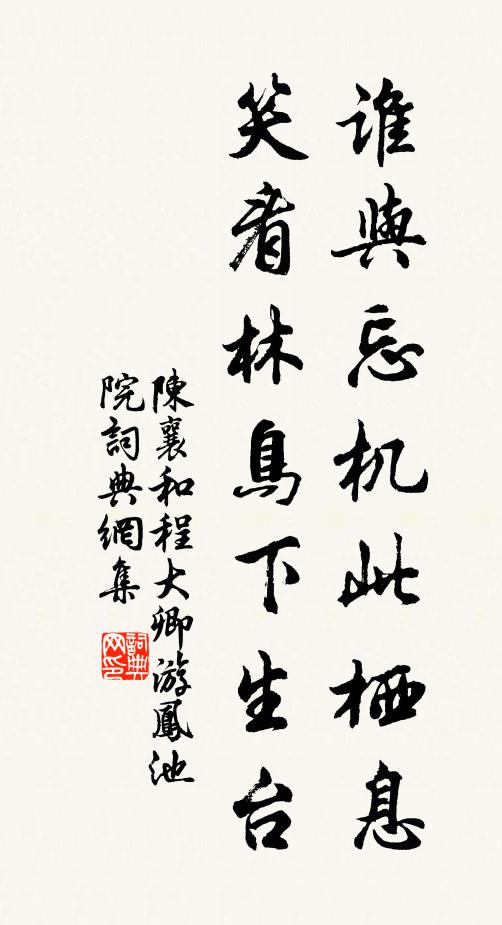 谁與忘机此栖息
笑看林鳥下生台
陳襄和程大卿游鳳池
院詞典網集
詞典网印